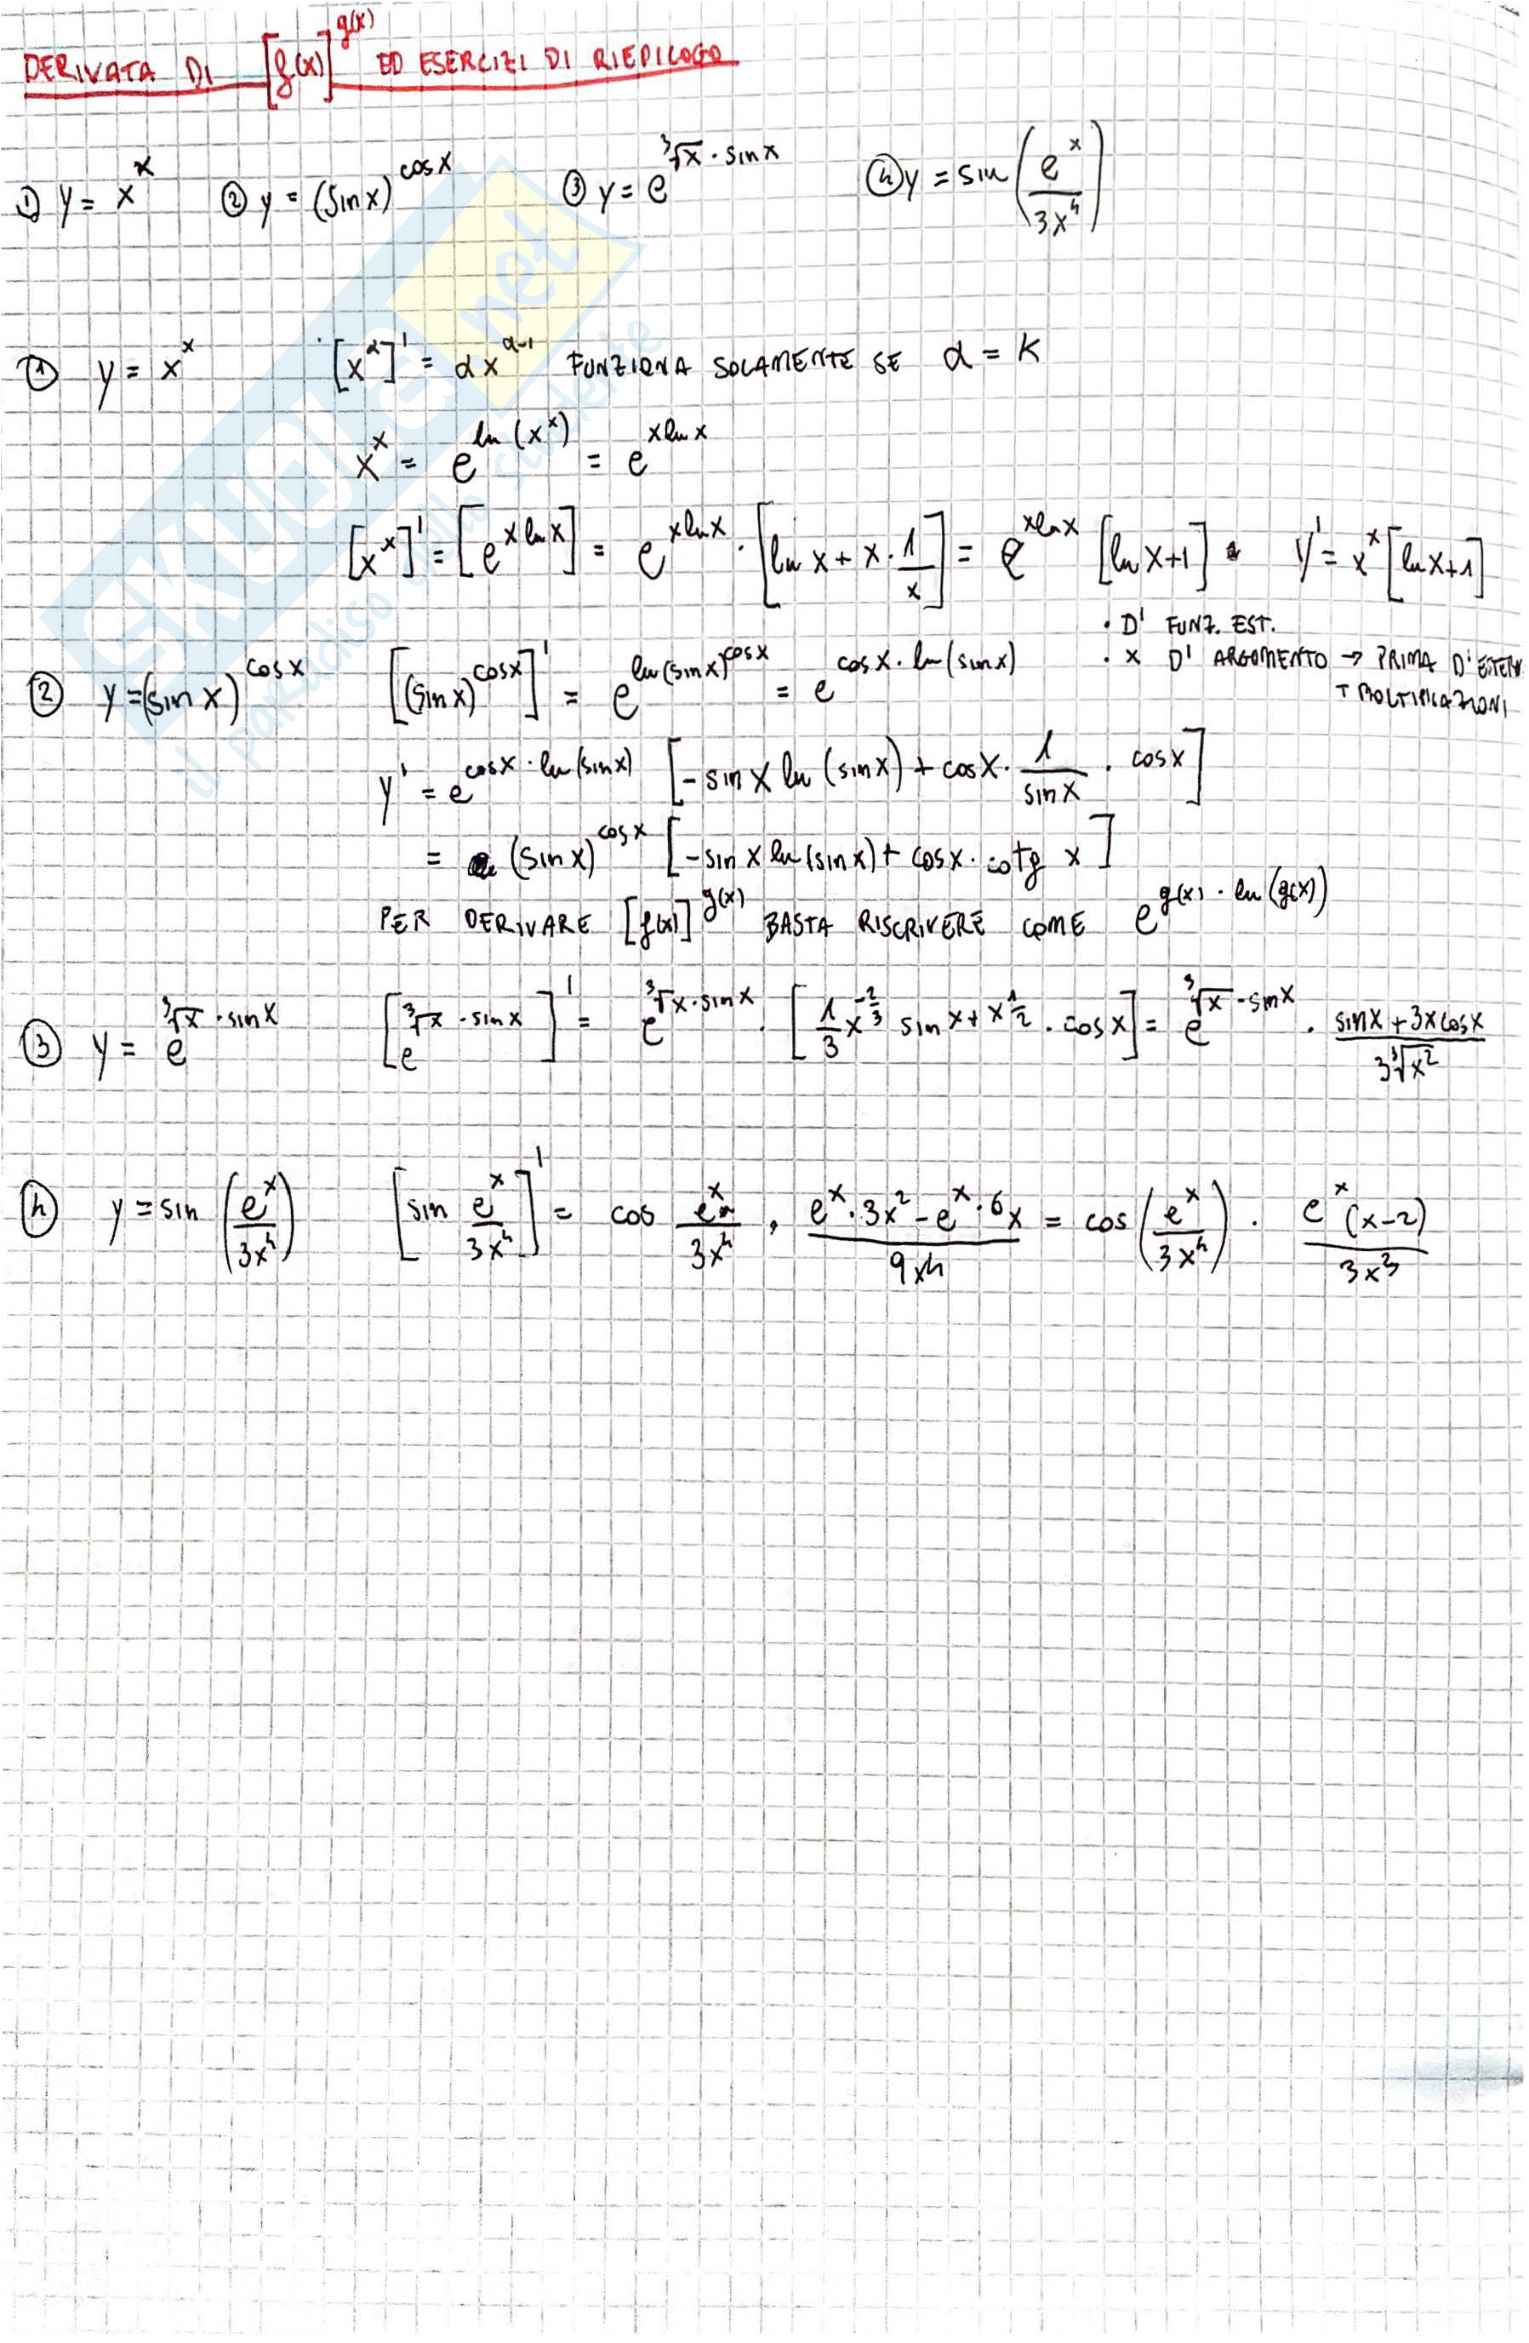 DERIVATA DI [f(x)]^g(x) ED ESERCIZI DI RIEPILOGO
① y = x^x ② y = (sin x)^cos x ③ y = e^(∛x · sin x) ④ y = sin (e^x / 3x^4)
① y = x^x [x^α]' = αx^(α-1) FUNZIONA SOLAMENTE SE α = K
x^x = e^(ln (x^x)) = e^(x ln x)
[x^x]' = [e^(x ln x)] = e^(x ln x) · [ln x + x · 1/x] = e^(x ln x) [ln x + 1] y' = x^x [ln x + 1]
· D' FUNZ. EST.
· x D' ARGOMENTO → PRIMA D' ESTERN
② y = (sin x)^cos x [(sin x)^cos x]' = e^(ln (sin x)^cos x) = e^(cos x · ln (sin x))
MOLTIPLICAZIONI
y' = e^(cos x · ln (sin x)) [-sin x ln (sin x) + cos x · 1/sin x · cos x]
= (sin x)^cos x [-sin x ln (sin x) + cos x · cotg x]
PER DERIVARE [f(x)]^g(x) BASTA RISCRIVERE COME e^(g(x) · ln (g(x)))
③ y = e^(∛x · sin x) [e^(∛x · sin x)]' = e^(∛x · sin x) · [1/3 x^(-2/3) sin x + x^(1/2) · cos x] = e^(∛x · sin x) · (sin x + 3x cos x) / 3∛x^2
④ y = sin (e^x / 3x^4) [sin e^x / 3x^4]' = cos e^x / 3x^4 · (e^x · 3x^2 - e^x · 6x) / 9x^4 = cos (e^x / 3x^4) · e^x (x-2) / 3x^3
SKUOLA.net
il paradiso dello studente